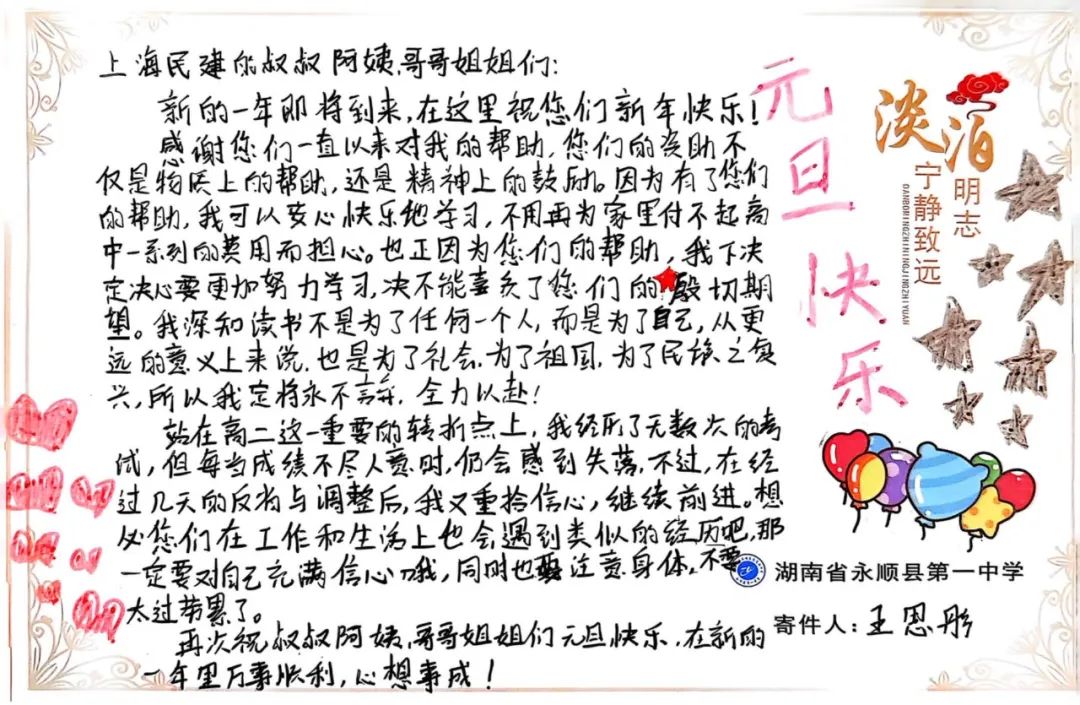 上海民建的叔叔阿姨、哥哥姐姐们:
新的一年即将到来,在这里祝您们新年快乐!
感谢您们一直以来对我的帮助,您们的资助不
仅是物质上的帮助,还是精神上的鼓励。因为有了您们
的帮助,我可以安心快乐地学习,不用再为家里付不起高
中一系列的费用而担心。也正因为您们的帮助,我下决
定决心要更加努力学习,决不能辜负了您们的殷切期
望。我深知读书不是为了任何一个人,而是为了自己,从更
远的意义上来说,也是为了社会、为了祖国、为了民族之复
兴,所以我定将永不言弃,全力以赴!
站在高二这一重要的转折点上,我经历了无数次的考
试,但每当成绩不尽人意时,仍会感到失落,不过,在经
过几天的反省与调整后,我又重拾信心,继续前进。想
必您们在工作和生活上也会遇到类似的经历吧,那
一定要对自己充满信心哦,同时也要注意身体,不要
太过劳累了。
再次祝叔叔阿姨、哥哥姐姐们元旦快乐,在新的
一年里万事顺利,心想事成!
元旦快乐
淡泊
明志
宁静致远
DANBOMINGZHININGJINGZHIYUAN
湖南省永顺县第一中学
寄件人:王恩彤